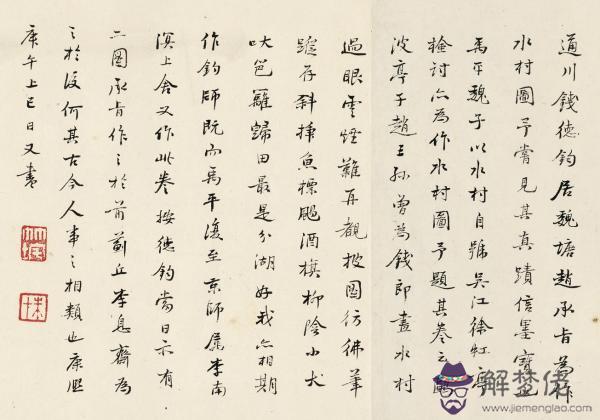 通川錢德鈞居魏塘趙承旨為作
水村圖予嘗見其真蹟信墨寶也
禹平魏子以水村自號吳江徐虹亭
檢討亦為作水村圖予題其卷云鷗
波亭子趙王孫曾為錢郎畫水村
過眼雲煙難再覩披圖彷彿筆
蹤存斜插魚標颺酒旗柳陰小犬
吠笆籬歸田最是分湖好我亦相期
作釣師既而禹平復至京師属李南
溟上舍又作此卷按德鈞當日亦有
二圖承旨作之於前薊丘李息齋為
之於後何其古今人事之相類也康熙
庚午上巳日又書
解梦佬
www.jiemengliao.com